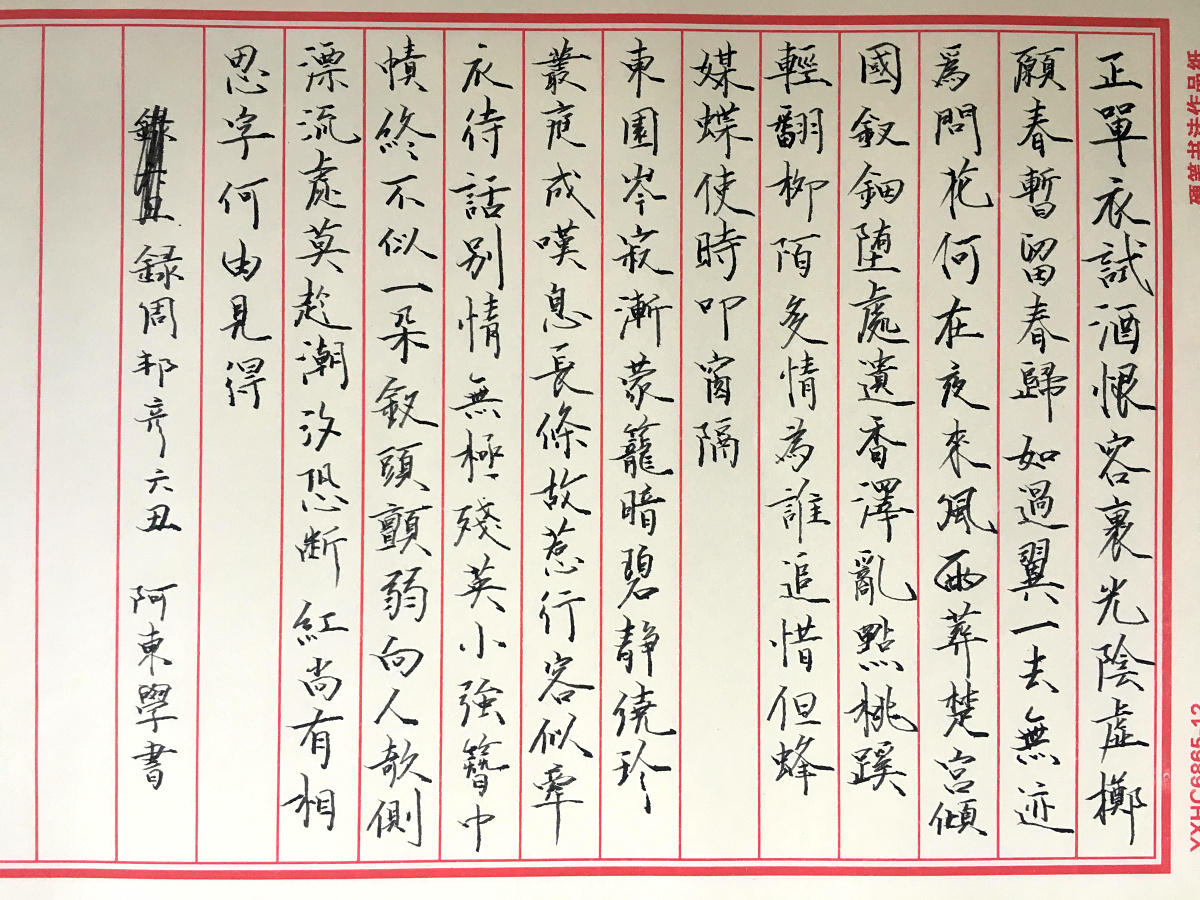 正單衣試酒恨客裏光陰虛擲
願春暫留春歸如過翼一去無迹
爲問花何在夜來風雨葬楚宮傾
國釵鈿墮處遺香澤亂點桃蹊
輕翻柳陌多情為誰追惜但蜂
媒蝶使時叩窗隔
東園岑寂漸蒙籠暗碧靜繞珍
叢底成嘆息長條故惹行客似牽
衣待話別情無極殘英小強簪巾
幘終不似一朵釵頭顫弱向人欹側
漂流處莫趁潮汐恐断 紅尚有相
思字何由見得
録周邦彦六丑 阿東學書
硬笔书法作品纸
YXHC6865-12